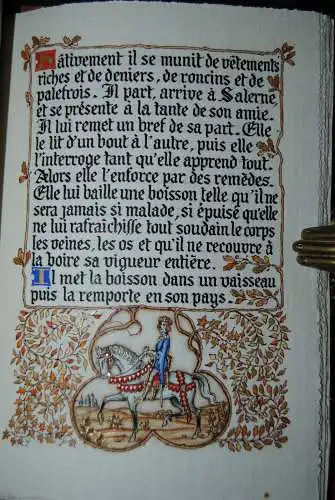 Hâtivement il se munit de vêtements
riches et de deniers, de roncins et de
palefrois. Il part, arrive à Salerne,
et se présente à la tante de son amie.
Il lui remet un bref de sa part. Elle
le lit d'un bout à l'autre, puis elle
l'interroge tant qu'elle apprend tout.
Alors elle l'enforce par des remèdes.
Elle lui baille une boisson telle qu'il ne
sera jamais si malade, si épuisé qu'elle
ne lui rafraîchisse tout soudain le corps
les veines, les os et qu'il ne recouvre à
la boire sa vigueur entière.
Il met la boisson dans un vaisseau
puis la remporte en son pays.